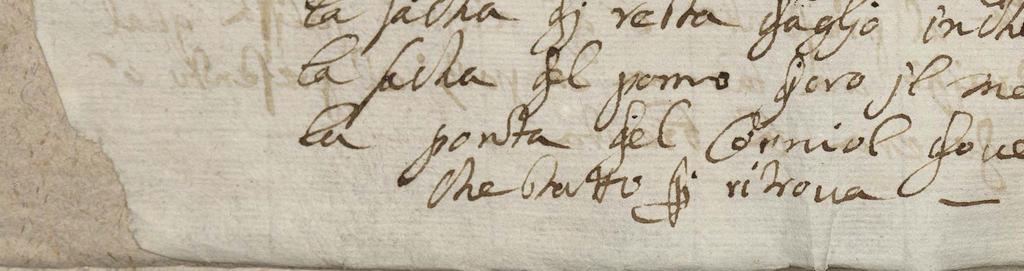 la facha di retta daglio inche
la facha del pomo doro jl me
la ponta del Corniol doue
che tutto si ritroua